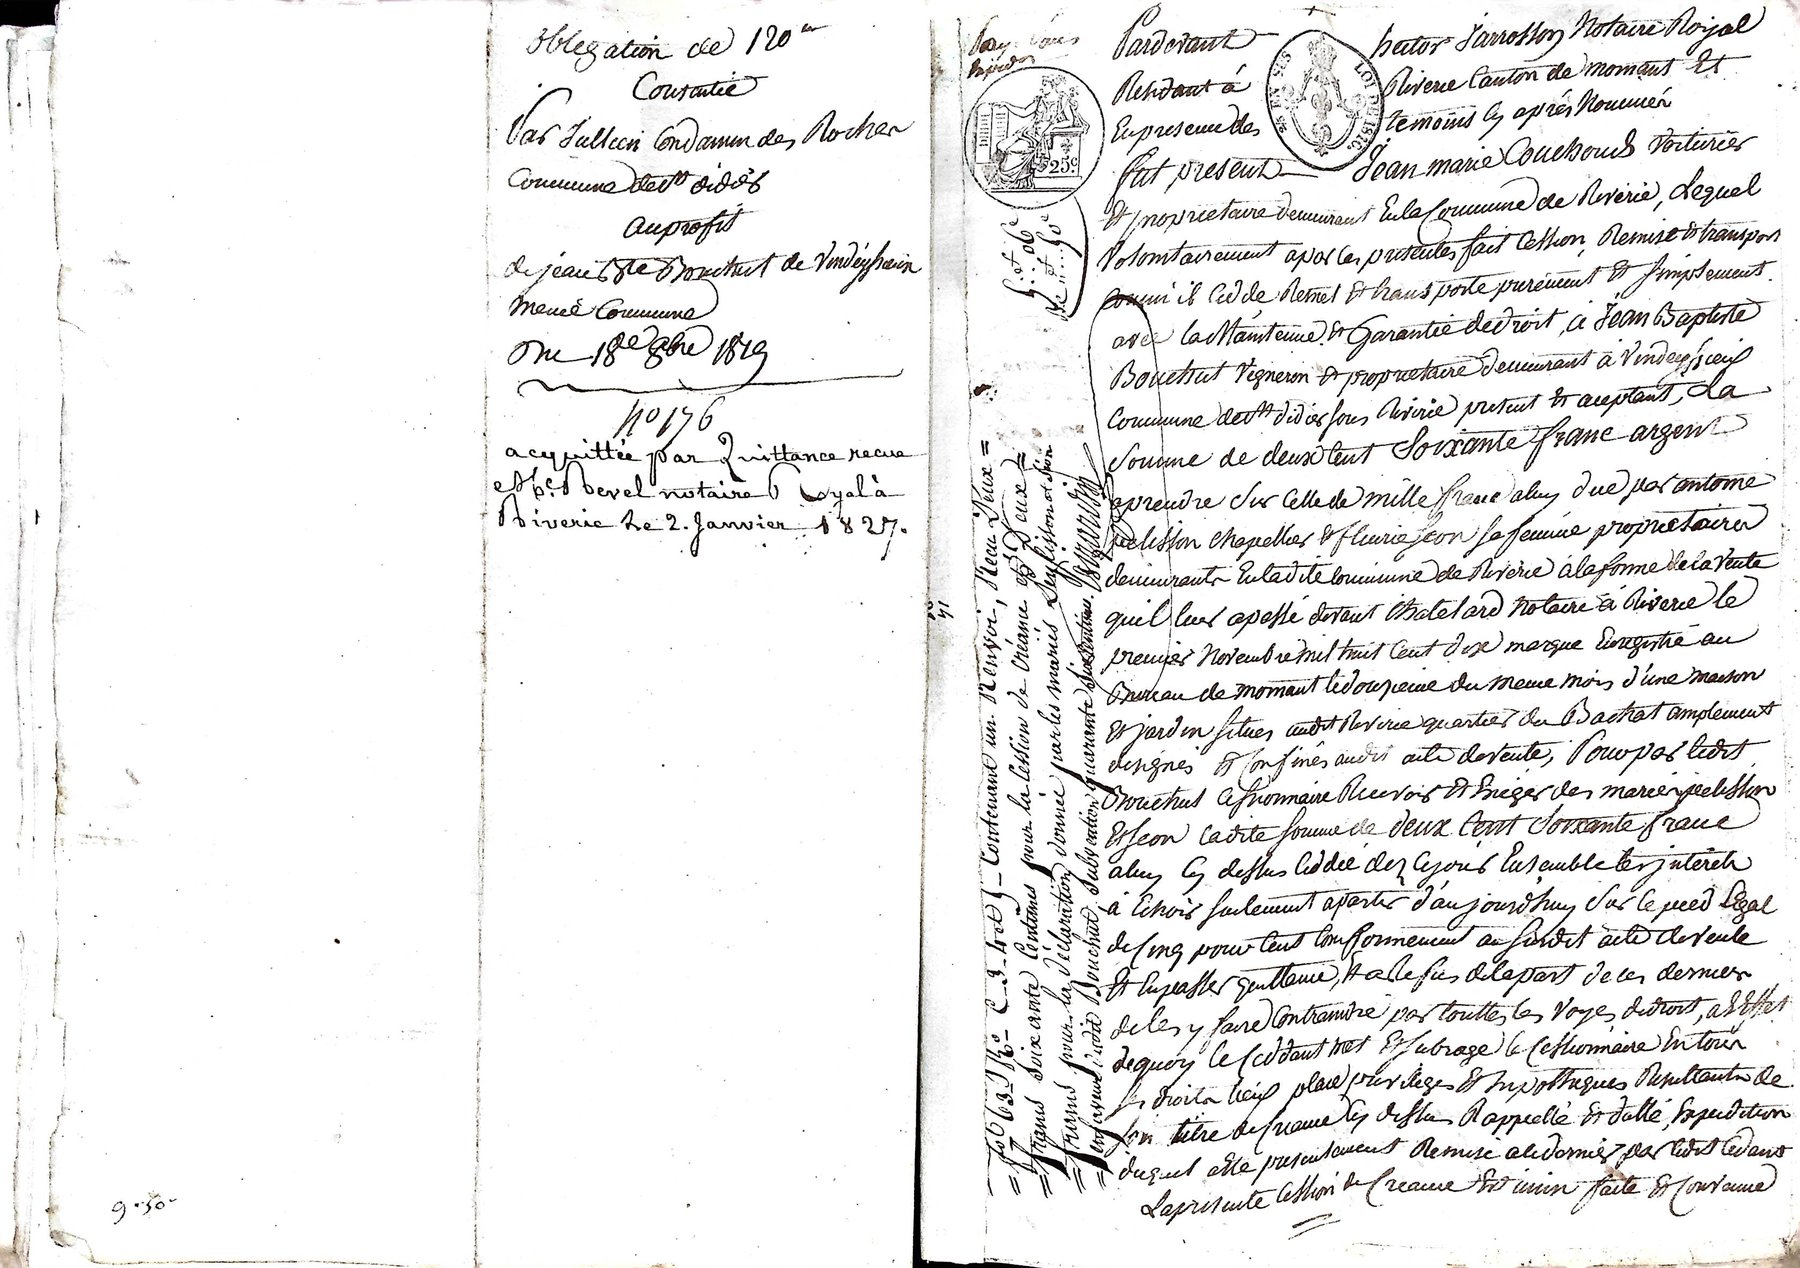 obligation de 120
Consentie
Par Jullien Condamin des Rocher
Commune de st didier
au profit
de jean Bte Bouchut de Vindeyssieux
meme Commune
Du 18 de 8bre 1819
no 176
acquittée par Quittance recue
notaire Royal à
Riverie Le 2. Janvier 1827.
9 . 50
Pardevant hector Jarrosson Notaire Royal
Residant à Riverie Canton de mornant Et
En presence des temoins Cy après Nommés
fut present Jean marie Couchoud Voiturier
Et proprietaire demeurant En la Commune de Riverie, Lequel
Volontairement a par ces presentes fait Cession, Remise et transport
Comme il cedde Remet et transporte purement Et simplement
avec la Maintenue et Garantie de droit, à Jean Baptiste
Bouchut Vigneron et proprietaire demeurant à Vindeyssieux
Commune de st didier sous Riverie present et aceptant, La
Somme de deux Cent Soixante franc argent
aprendre sur Celle de mille franc a luy due par antoine
pelisson chapellier et fleurie jeon sa femme proprietaires
demeurants En ladite Commune de Riverie à la forme de la Vente
quil leur a passé devant Chatelard Notaire à Riverie le
premier Novembre mil huit Cent dix Enregistré au
Bureau de mornant le douzieme du meme mois d'une maison
Et jardin situés audit Riverie quartier du Bachat amplement
designés et Confinés audit acte de vente, Pour par ledit
Bouchut Cessionnaire Recevoir et Exiger des mariés pelisson
Et jeon ladite somme de deux Cent Soixante franc
a luy Cy dessus Ceddée dez Ce jour Ensemble les jnterets
à Echoir seulement a partir d'aujourdhuy sur le pied Legal
de Cinq pour Cent Conformement au susdit acte de vente
Et En passer quittance, et a Refus de la part de ces derniers
de les y faire Contraindre par touttes les Voyes de droit, a L'Effet
de quoy le Ceddant met Et subroge le Cessionnaire En tous
ses droits lieux place privileges Et hypotheques Resultants de
son titre de Creance Cy dessus Rappellé et datté, Expedition
duquel a Eté presentement Remise a ce dernier par ledit Cedant
La presente Cession de Creance Est ainsi faite Et Convenue
25c
LOI DE 1816
5f : 06c
Contenant un Renvoi, Recu Deux =
= francs Soixante Centimes pour la Cession de Créance et Deux =
= francs pour la déclaration donnée par les mariés Pelisson et Jéon
Bouchut, Subvention quarante Six Centimes.